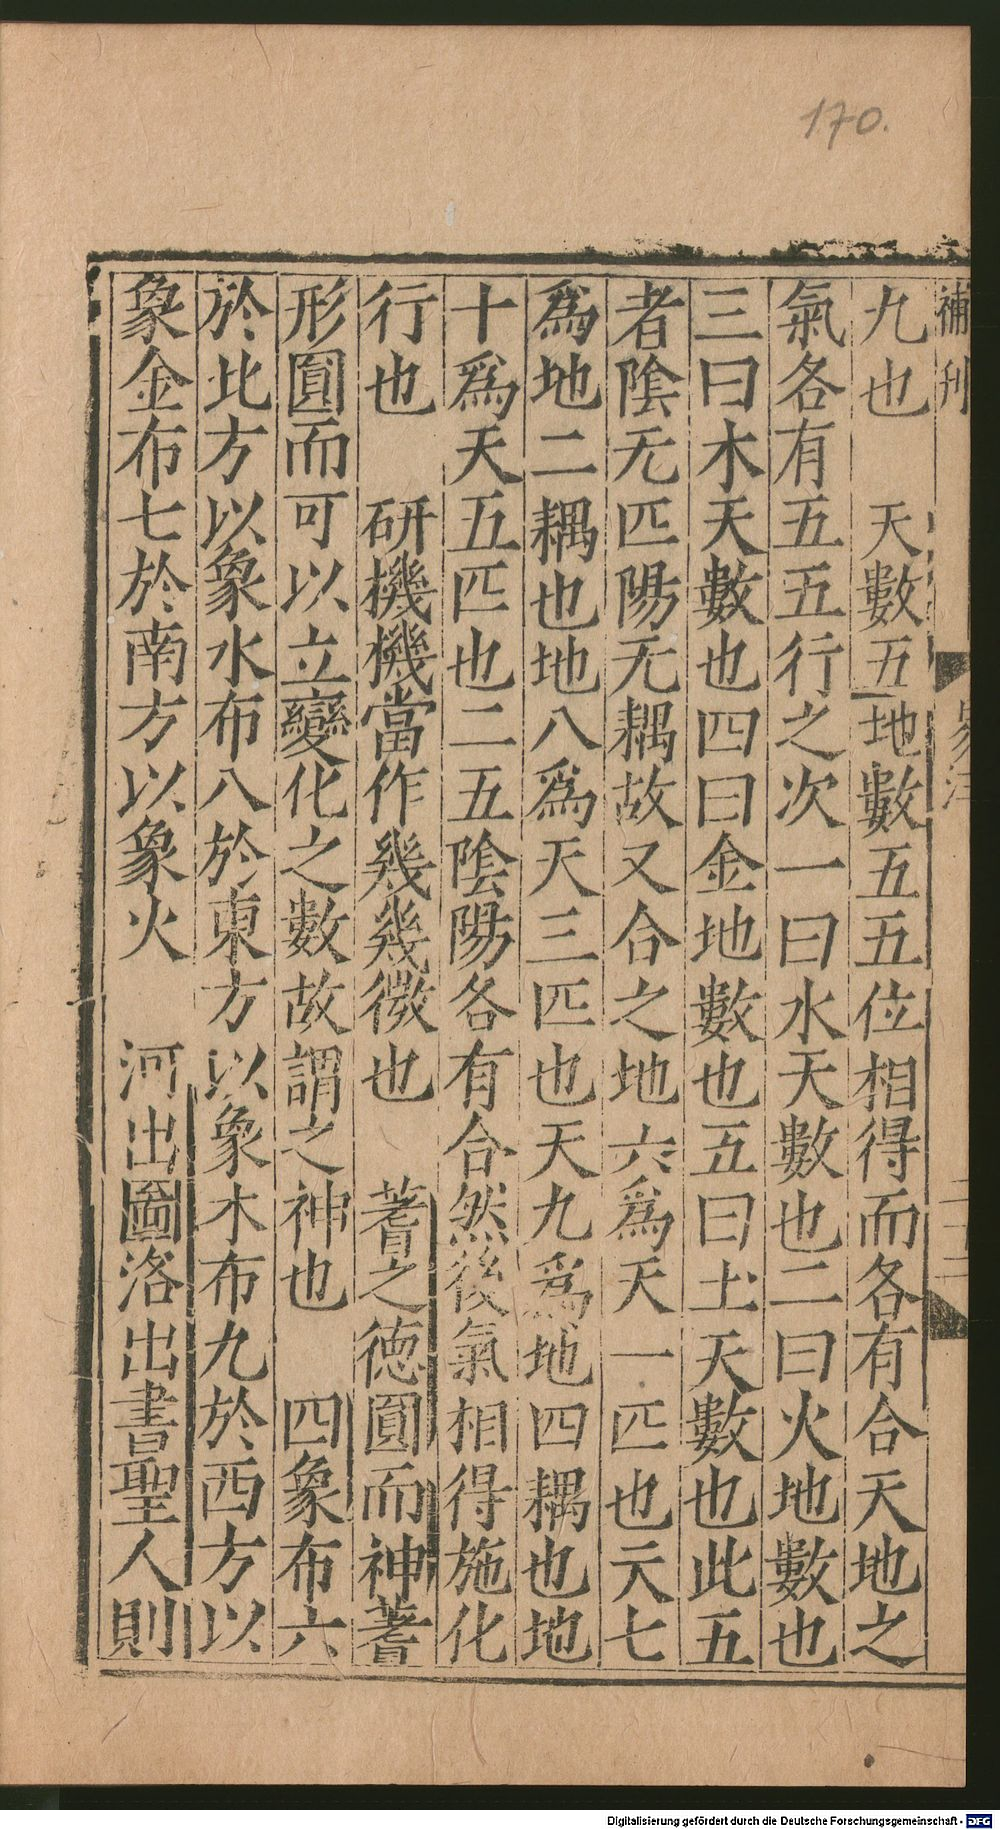 170.
補刊
易注
九也　天數五地數五五位相得而各有合天地之
氣各有五五行之次一曰水天數也二曰火地數也
三曰木天數也四曰金地數也五曰土天數也此五
者隂无匹陽无耦故又合之地六爲天一匹也天七
爲地二耦也地八爲天三匹也天九爲地四耦也地
十爲天五匹也二五隂陽各有合然後氣相得施化
行也　研機機當作幾幾微也　蓍之德圓而神蓍
形圓而可以立變化之數故謂之神也　四象布六
於北方以象水布八於東方以象木布九於西方以
象金布七於南方以象火　河出圖洛出書聖人則
Digitalisierung gefördert durch die Deutsche Forschungsgemeinschaft - DFG